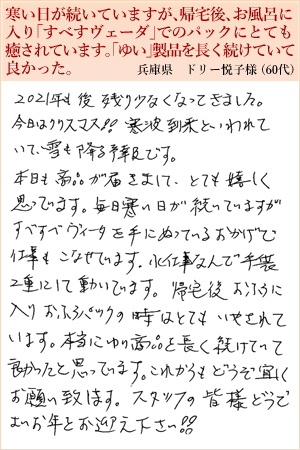 寒い日が続いていますが、帰宅後、お風呂に
入り「すべすべヴェーダ」でのパックにとても
癒されています。「ゆい」製品を長く続けていて
良かった。
兵庫県 ドリー悦子様(60代)
2021年も後残り少なくなってきました。
今日はクリスマス!! 寒波到来といわれて
いて、雪も降る様です。
本日も商品が届きまして、とても嬉しく
思っています。毎日寒い日が続いていますが
すべすべヴェーダを手にぬっているおかげで
仕事もこなせています。水仕事なんで手袋
2重にして動いています。帰宅後おふろに
入りおふろパックの時はとてもいやされて
います。本当にゆい商品を長く続けていて
良かったと思っています。これからもどうぞ宜しく
お願い致します。スタッフの皆様どうぞ
よいお年をお迎え下さい!!